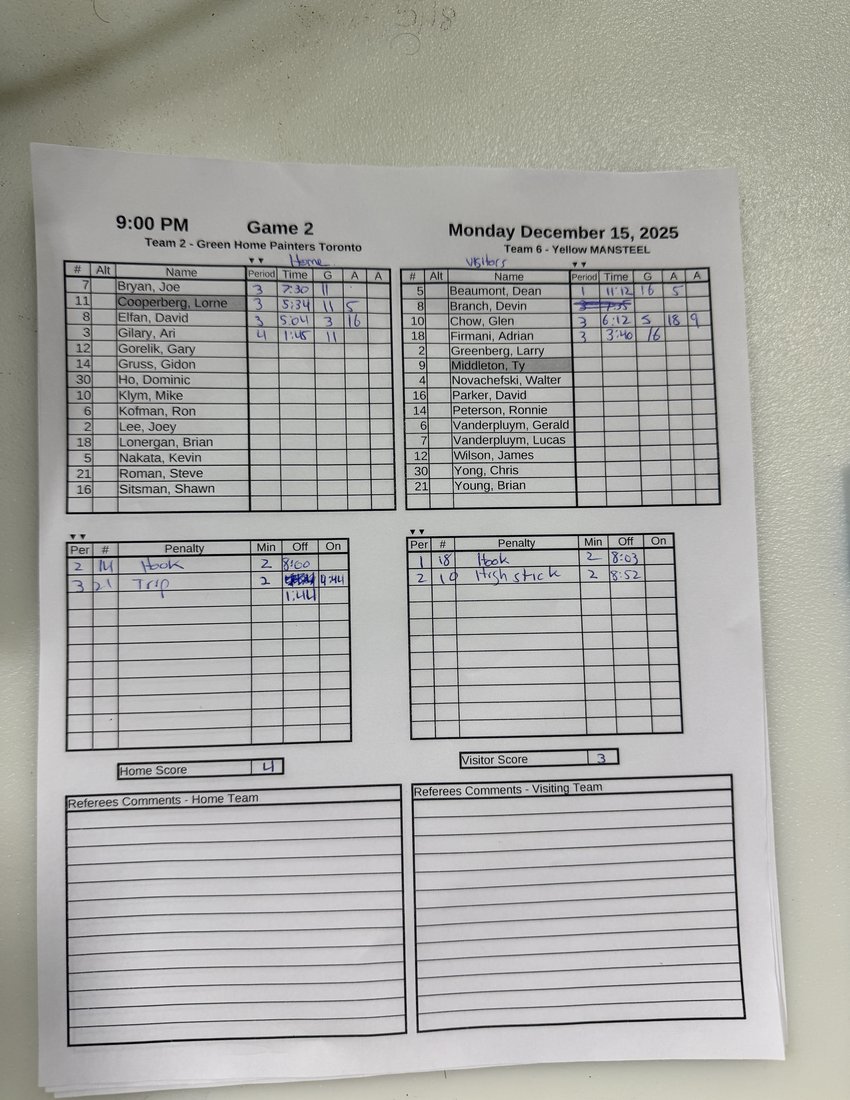 9:00 PM Game 2 Monday December 15, 2025
Team 2 - Green Home Painters Toronto Team 6 - Yellow MANSTEEL
Home
# Alt Name Period Time G A A
7 Bryan, Joe 3 7:30 11
11 Cooperberg, Lorne 3 5:34 11 5
8 Elfan, David 3 5:04 3 16
3 Gilary, Ari 4 1:45 11
12 Gorelik, Gary
14 Gruss, Gidon
30 Ho, Dominic
10 Klym, Mike
6 Kofman, Ron
2 Lee, Joey
18 Lonergan, Brian
5 Nakata, Kevin
21 Roman, Steve
16 Sitsman, Shawn
visitors
# Alt Name Period Time G A A
5 Beaumont, Dean 1 11:12 16 5
8 Branch, Devin 3 7:35
10 Chow, Glen 3 6:12 5 18 9
18 Firmani, Adrian 3 3:40 16
2 Greenberg, Larry
9 Middleton, Ty
4 Novachefski, Walter
16 Parker, David
14 Peterson, Ronnie
6 Vanderpluym, Gerald
7 Vanderpluym, Lucas
12 Wilson, James
30 Yong, Chris
21 Young, Brian
Per # Penalty Min Off On
2 14 Hook 2 8:00
3 21 Trip 2
1:44
Per # Penalty Min Off On
1 18 Hook 2 8:03
2 10 High stick 2 8:52
Home Score 4
Visitor Score 3
Referees Comments - Home Team
Referees Comments - Visiting Team